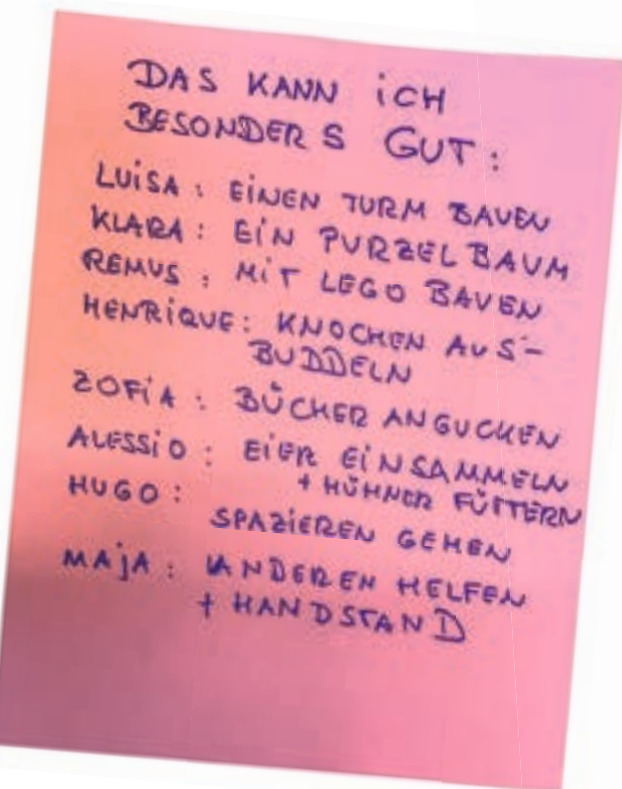 DAS KANN iCH
BESONDERS GUT:
LUiSA: EiNEN TURM BAUEN
KLARA: EiN PURZELBAUM
REMUS: MiT LEGO BAUEN
HENRiQUE: KNOCHEN AUS-
BUDDELN
ZOFiA: BÜCHER ANGUCKEN
ALESSiO: EiER EiNSAMMELN
+ HÜHNER FÜTTERN
HUGO:
SPAZiEREN GEHEN
MAjA: ANDEREN HELFEN
+ HANDSTAND